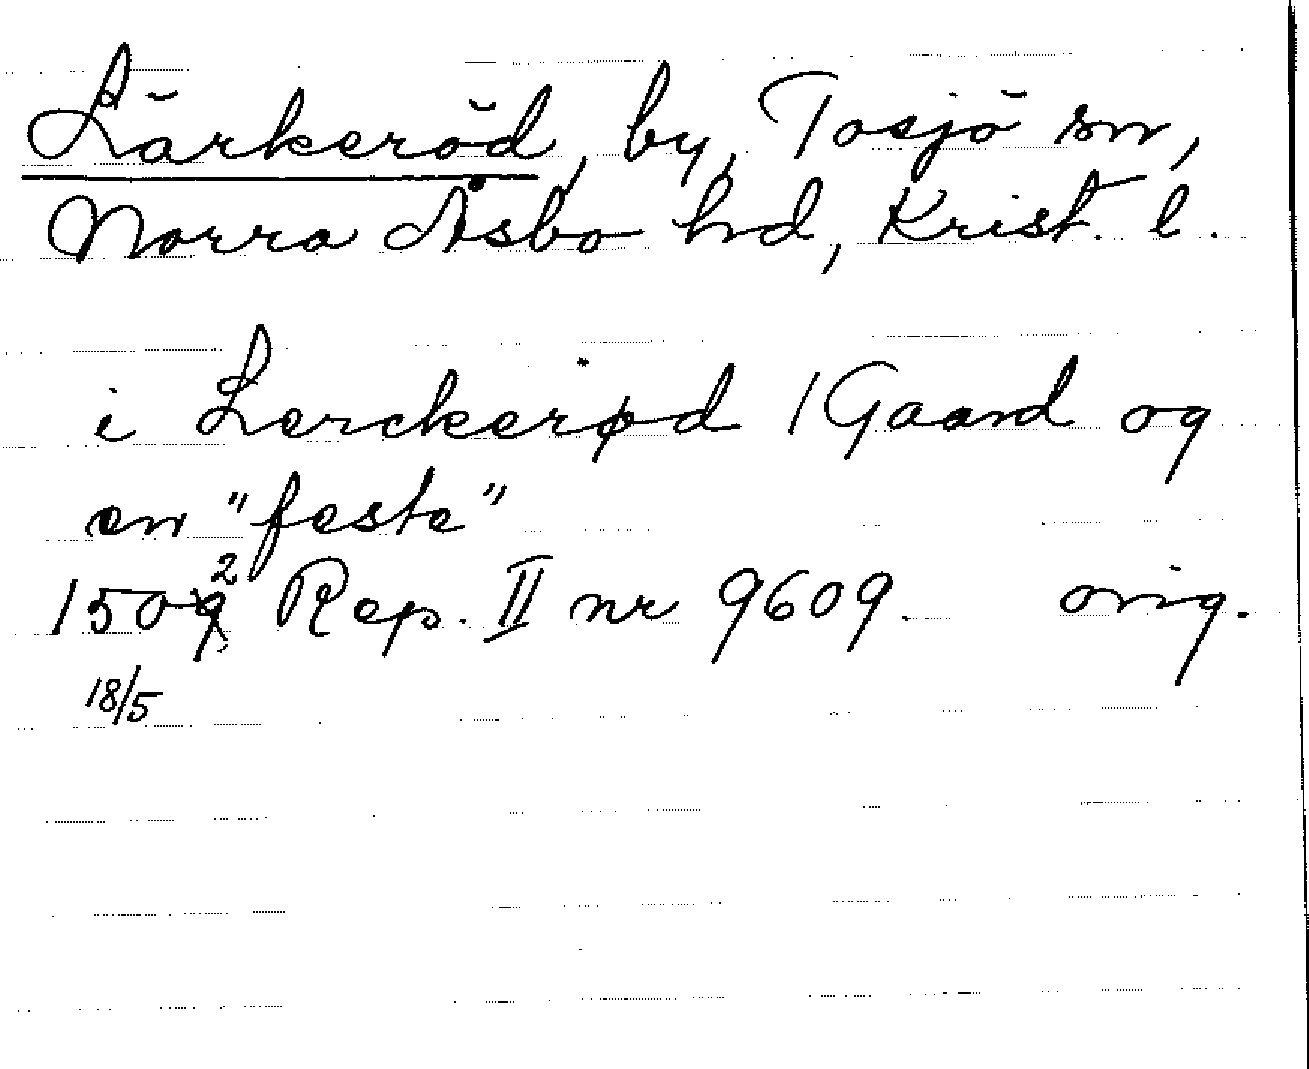 Lärkeröd, by, Tosjö sn,
Norra Åsbo hd, Krist. l.
i Lerckerød 1 Gaard og
en "feste"
1502 Rep. II nr 9609. orig.
18/5